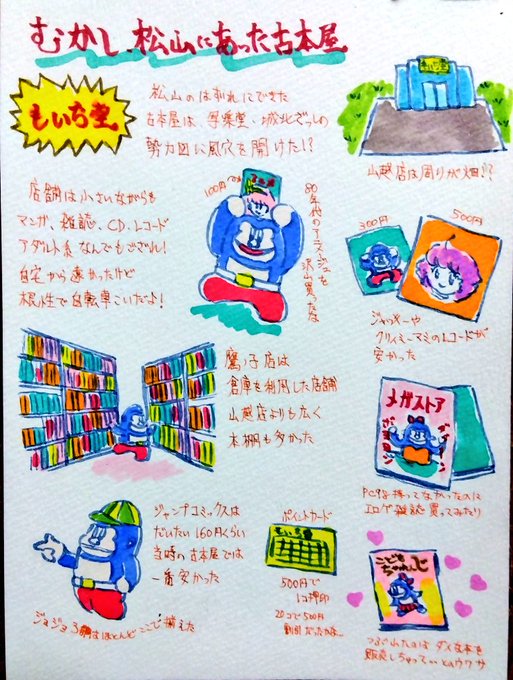 むかし、松山にあった古本屋
もいち堂
松山のはずれにできた
古本屋は、写楽堂、城北ざっしの
勢力図に風穴を開けた!?
もいち堂
山越店は周りが畑!?
店舗は小さいながらも
マンガ、雑誌、CD、レコード
アダルト系 なんでもござれ!
自宅から遠かったけど
根性で自転車こいだよ!
100円
80年代のアニメージュを
沢山買ったな
300円
500円
ジャッキーや
クリィミーマミのレコードが
安かった
鷹ノ子店は
倉庫を利用した店舗
山越店よりも広く
本棚も多かった
メガストア
PC99持ってなかったのに
エロゲ雑誌 買ってみたり
ジャンプコミックスは
だいたい160円くらい
当時の古本屋では
一番安かった
ジョジョ3部はほとんどここで揃えた
ポイントカード
もいち堂
500円で
1コ押印
20コで500円
割引だったかな…
つぶれたのは ダメな本を
販売しちゃって… とのウワサ